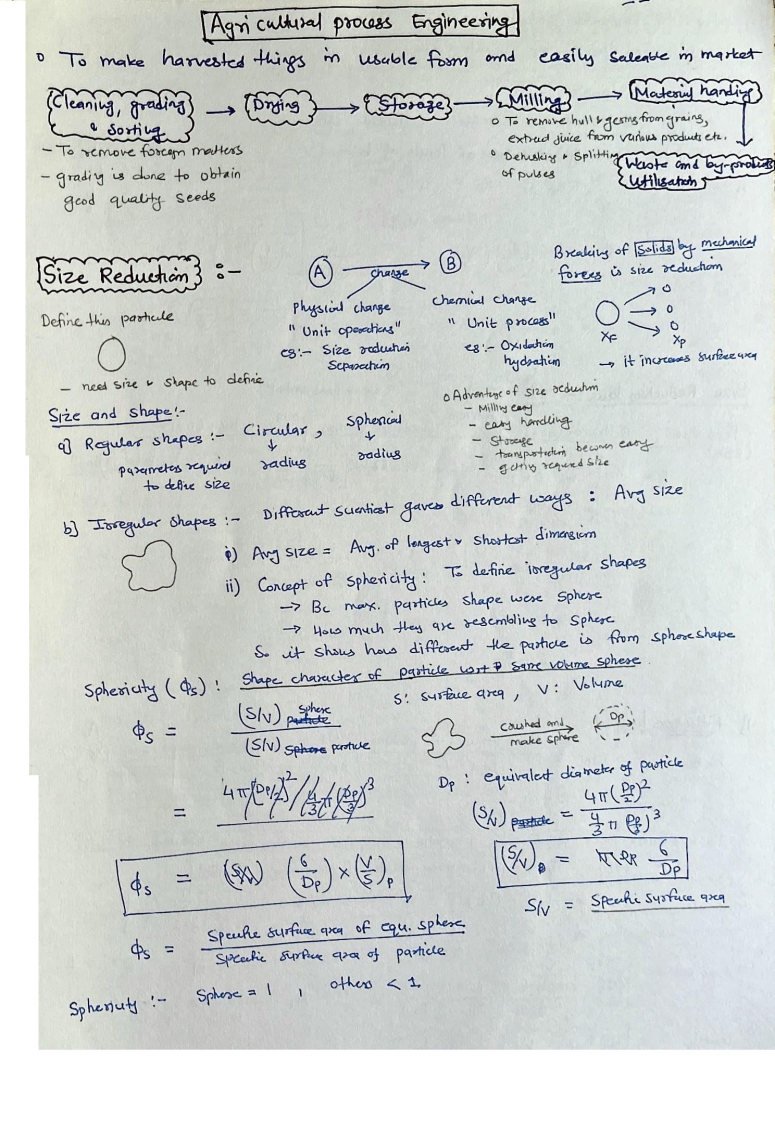 Agricultural process Engineering
o To make harvested things in usable form and easily saleable in market
Cleaning, grading & Sorting → Drying → Storage → Milling → Material handling
- To remove foreign matters
- grading is done to obtain
good quality seeds
o To remove hull & germs from grains,
extract juice from various products etc.
o Dehusking & Splitting
of pulses
Waste and by-products
Utilisation
Size Reduction :-
Define this particle
- need size & shape to define
A change B
Physical change
"Unit operations"
eg:- Size reduction
Separation
Chemical change
"Unit process"
eg:- Oxidation
hydration
Breaking of Solids by mechanical
forces is size reduction
XF
Xp
→ it increases surface area
Size and shape:-
a) Regular shapes :- Circular, Spherical
↓ ↓
radius radius
parameters required
to define size
o Advantage of size reduction
- Milling easy
- easy handling
- Storage
- transportation becomes easy
- getting required size
b) Irregular shapes :- Different scientist gaves different ways : Avg size
i) Avg size = Avg. of longest & shortest dimension
ii) Concept of sphericity : To define irregular shapes
→ Bc max. particles shape were sphere
→ How much they are resembling to sphere
So it shows how different the particle is from sphere shape
Sphericity (ϕs) : Shape character of particle w.r.t same volume sphere.
S : surface area , V : Volume
ϕs = (S/V) sphere / (S/V) particle
crushed and
make sphere
Dp
Dp : equivalent diameter of particle
= 4π(Dp/2)² / 4/3 π(Dp/3)³
(S/V) particle = 4π(Dp/2)² / 4/3 π(Dp/2)³
(S/V) = 6/Dp
ϕs = (6/Dp) × (V/S)p
S/V = Specific surface area
ϕs = Specific surface area of equ. sphere / Specific surface area of particle
Sphericity :- Sphere = 1 , others < 1